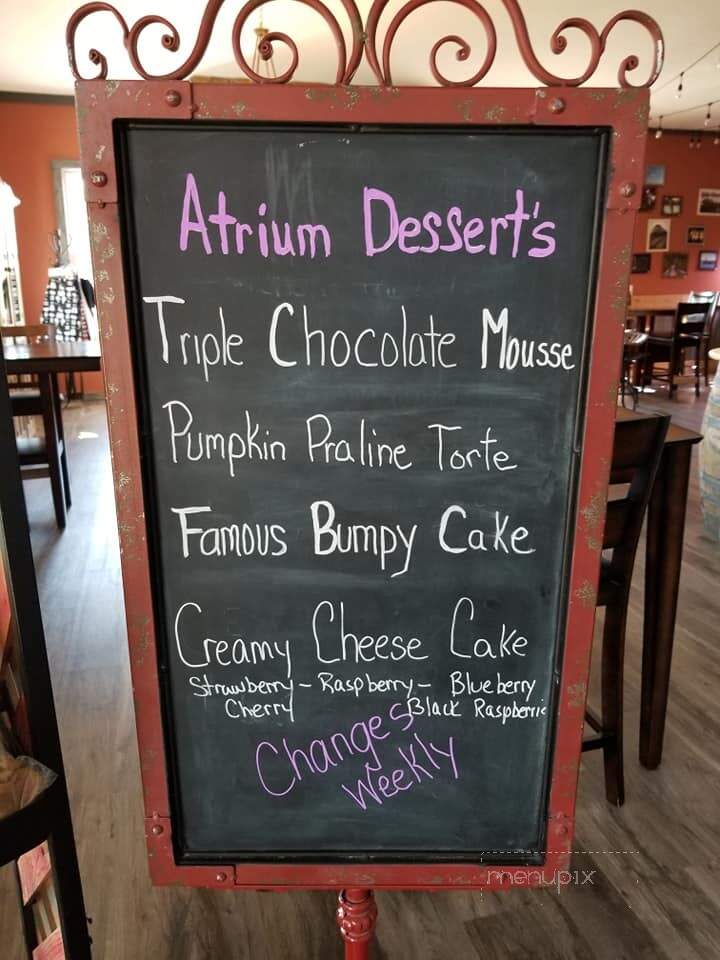 Atrium Dessert's
Triple Chocolate Mousse
Pumpkin Praline Torte
Famous Bumpy Cake
Creamy Cheese Cake
Strawberry - Raspberry - Blueberry
Cherry Black Raspberrie
Changes
Weekly
menupix